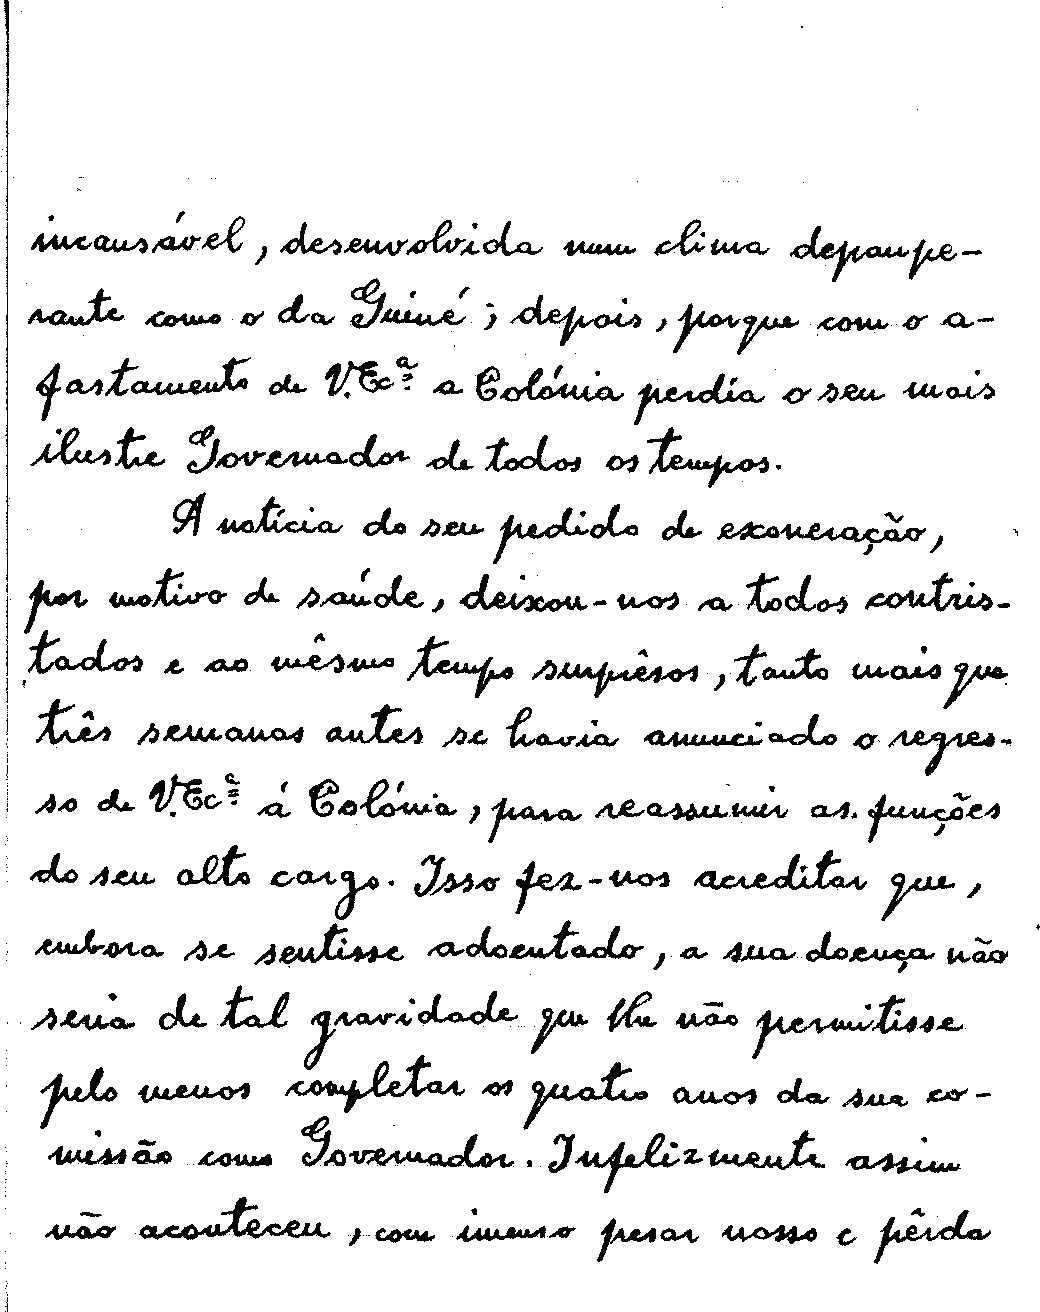 incansável, desenvolvida num clima depaupe-
rante como o da Guiné; depois, porque com o a-
fastamento de V. Ecª. a Colónia perdia o seu mais
ilustre Governador de todos os tempos.
A notícia do seu pedido de exoneração,
por motivo de saúde, deixou-nos a todos contris-
tados e ao mêsmo tempo surprêsos, tanto mais que
três semanas antes se havia anunciado o regres-
so de V. Ecª. á Colónia, para reassumir as funções
do seu alto cargo. Isso fez-nos acreditar que,
embora se sentisse adoentado, a sua doença não
seria de tal gravidade que lhe não permitisse
pelo menos completar os quatro anos da sua co-
missão como Governador. Infelizmente assim
não aconteceu, com imenso pesar nosso e pêrda